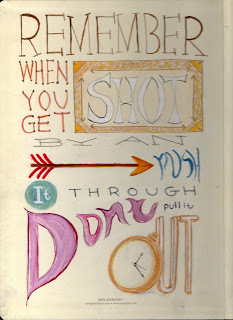 REMEMBER
WHEN
YOU
GET
SHOT
BY AN
PUSH
It THROUGH
Don't Pull it
OUT
MOLESKINE®